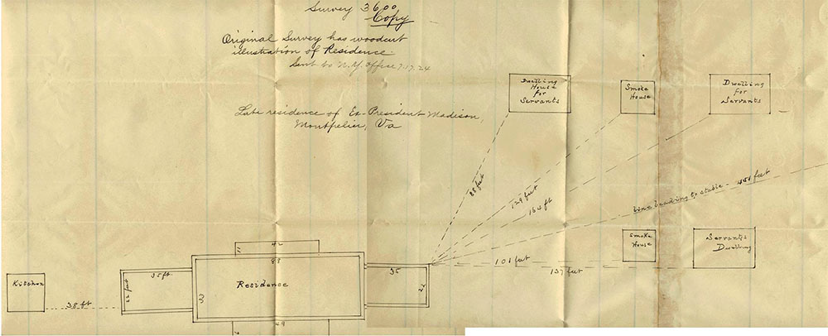 Survey 3600
Copy
Original Survey has woodcut
illustration of Residence
Sent to N.Y. Office 7-17-24
Late residence of Ex-President Madison,
Montpelier, Va
Dwelling
House
for
Servants
Smoke
House
Dwelling
for
Servants
88 feet
134 ft
line leading to stable - 486 feet
Smoke
House
Servants
Dwelling
106 feet
157 feet
42
88
35 ft
36
Residence
Kitchen
38 ft